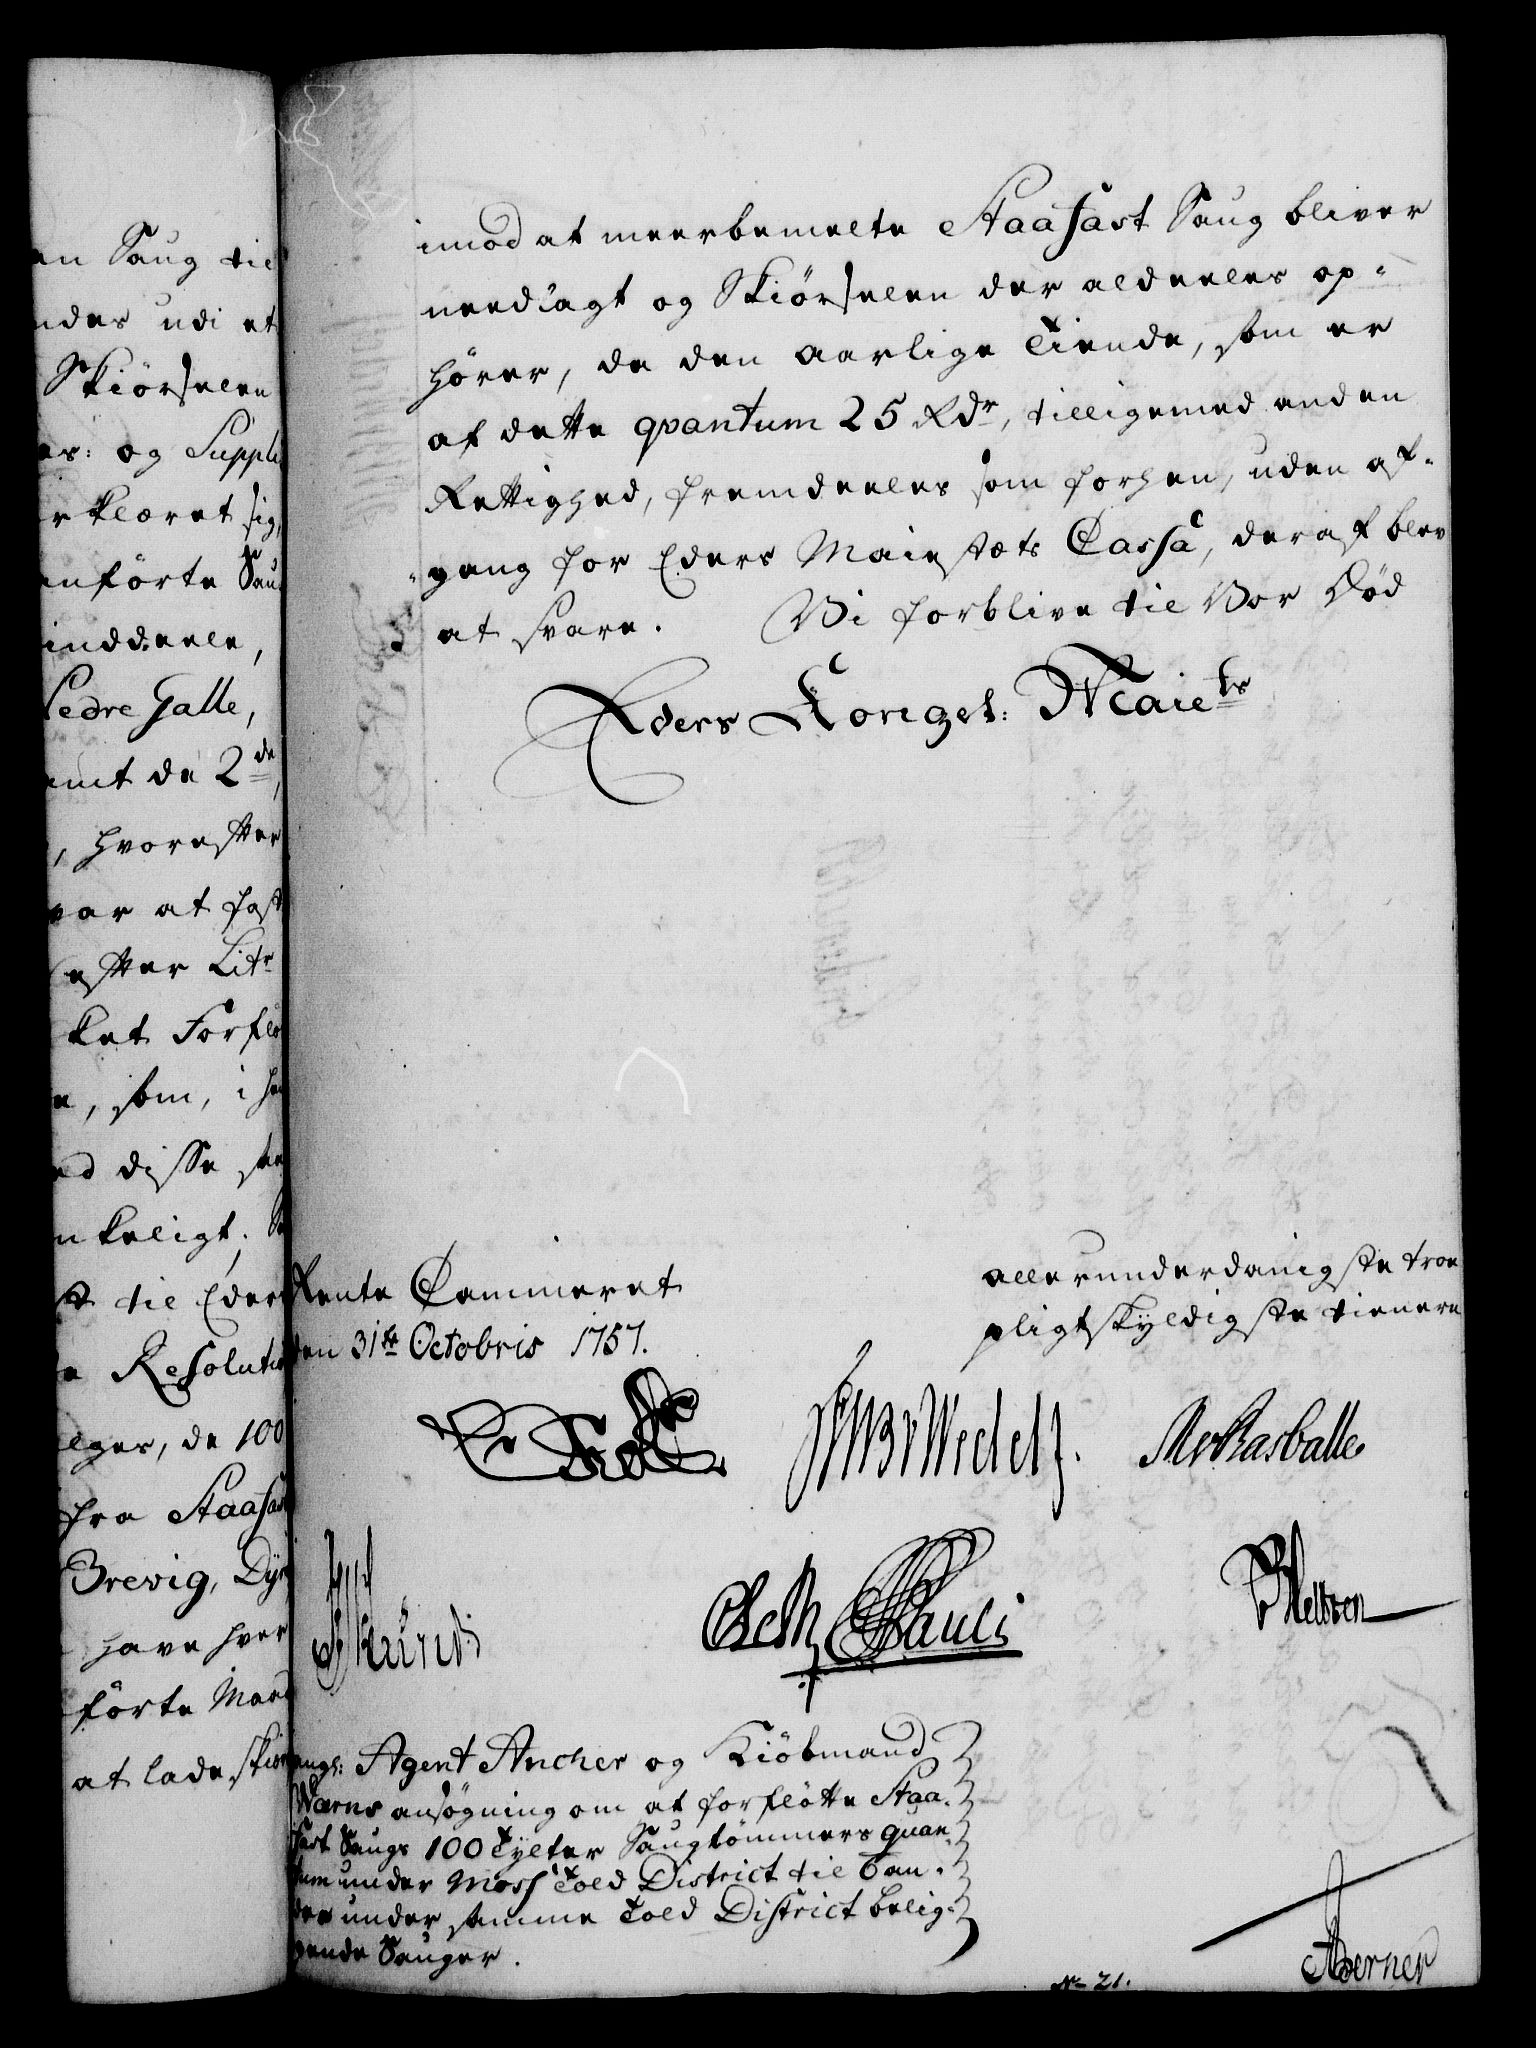 en Saug til
ndes udi et
Skiörselen
es: og Suppli
rklæret sig,
anförte Sau
inddeele,
Pedre Galle,
amt de 2de,
, hvorefter
var at fast
efter Litr
ket Forflö
e, som, i
ed disse
nkeligt.
til Eders
e Resoluti
lges, de 100
fra Staafas
Brevig, Dyr
have hver
förte Mand
at lade skiör
imod at meerbemelte Staafast Saug bliver
needlagt og Skiörselen der aldeeles op-
hörer, da den aarlige Tiende, som er
af dette qvantum 25 Rdr, tilligemed anden
Rettighed, fremdeeles som forhen, uden af-
gang for Eders Maiestæts Cassa, deraf blev
at svare. Vi forblive til Vor Död
Eders Kongel: Maiets
Rente Cammeret
den 31te Octobris 1757.
allerunderdanigste troe
pligtskyldigste tienere
Wedel
Rasballe
Pauli
Heltzen
angl: Agent Ancher og Kiöbmand
Wærns ansögning om at forflötte Staa-
fast Saugs 100 Tylter Saugtömmers quan-
tum under Moss Told District til 6 an-
dre under samme Told District belig-
gende Sauger.
No 21.